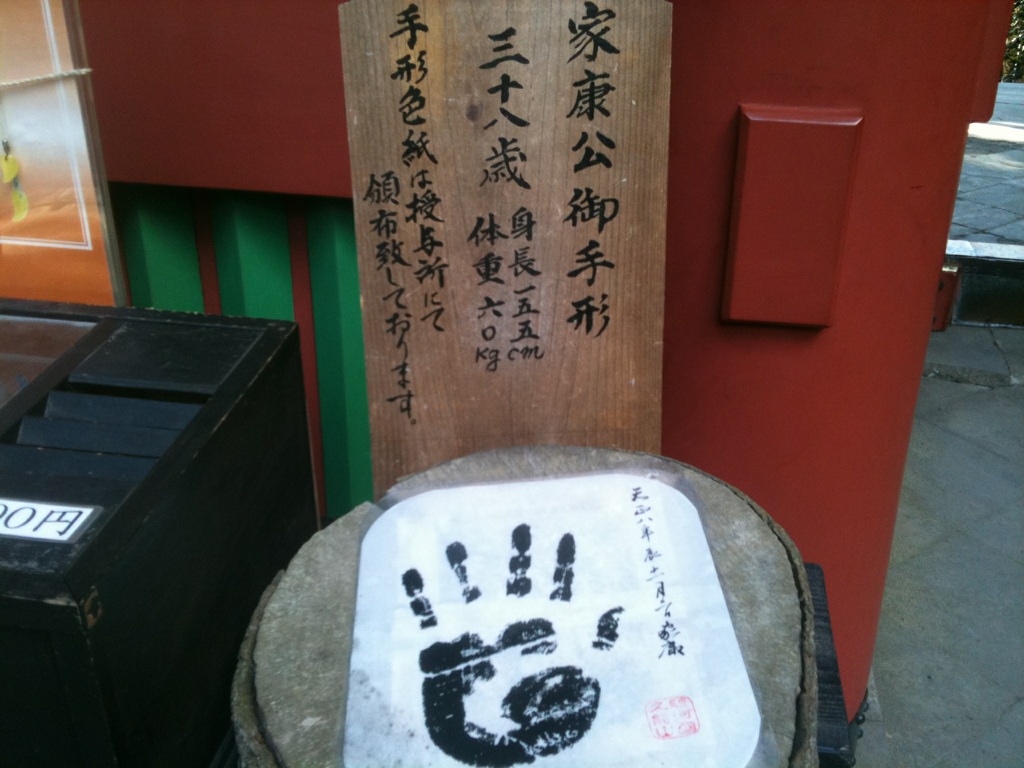 家康公御手形
三十八歳
身長一五五cm
体重六〇kg
手形色紙は授与所にて
頒布致しております。
天正八年辰十二月
家康
00円